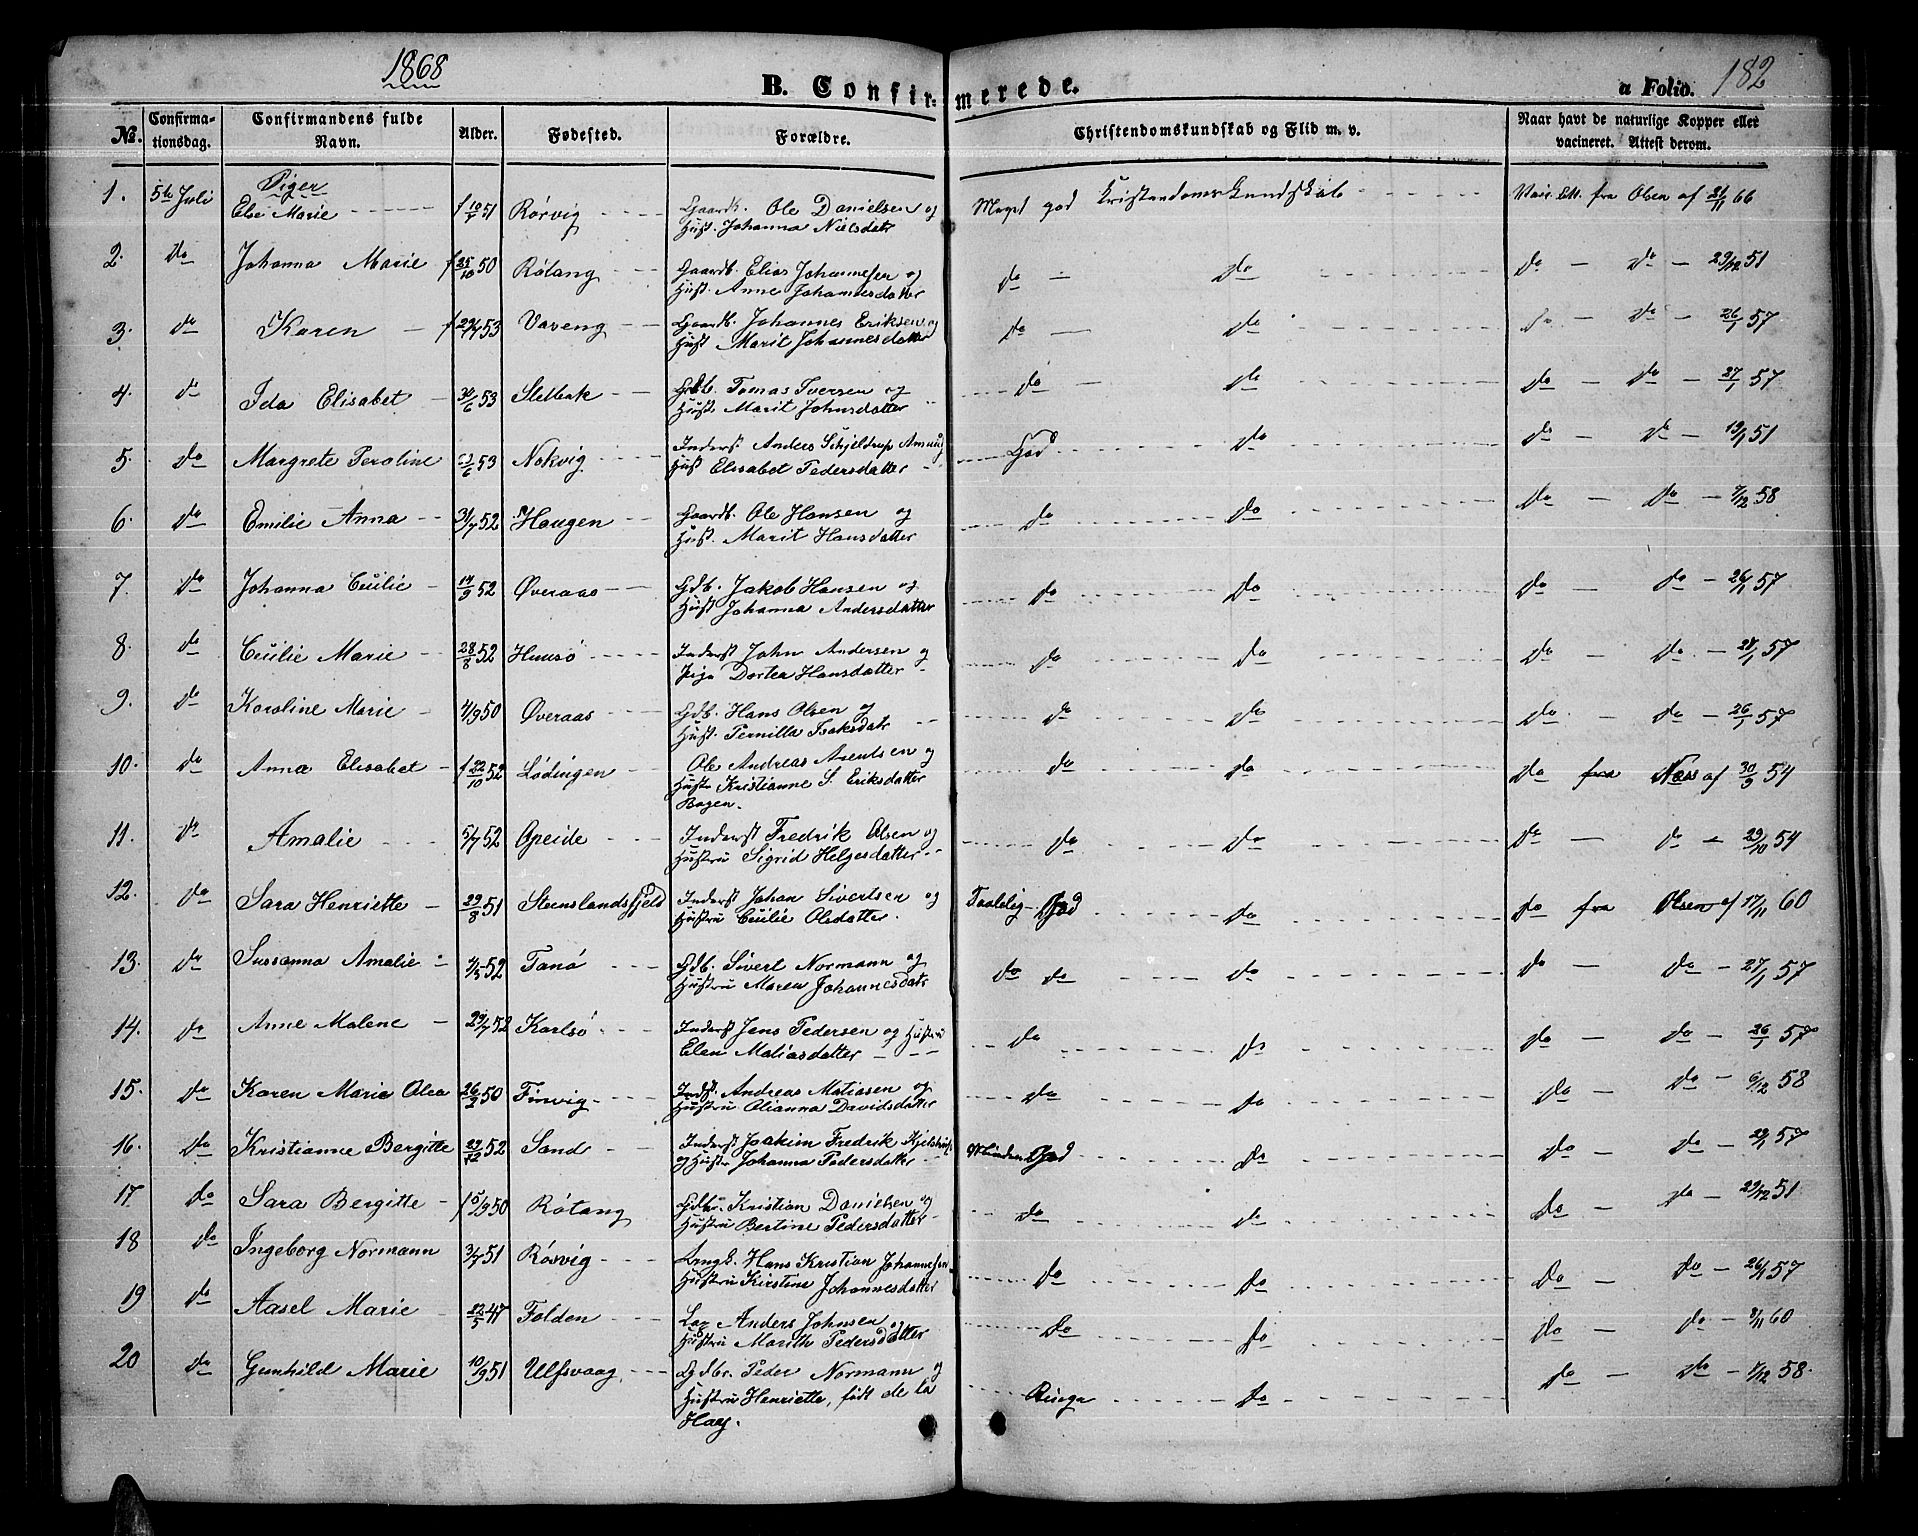 1868
B. Confirmerede.
a Folio. 182
No.
Confirmationsdag.
Confirmandens fulde Navn.
Alder.
Fødested.
Forældre.
Christendomskundskab og Flid m. v.
Naar havt de naturlige Kopper eller vacineret. Attest derom.
Piger
1. 5te Juli Else Marie f 10/5 51 Rørvig Gaardb. Ole Danielsen og Hust. Johanna Nielsdatr Meget god Kristendomskundskab fra Olsen af 21/11 66
2. Do Johanna Marie f 25/10 50 Røtang Gaardb. Elias Johannesen og Hust. Anne Johannesdatter do — do Do — Do — 29/12 51
3. do Karen f 29/7 53 Vaveng Gaardb. Johannes Eriksen og Hust Marit Johannesdatter do — do do — do — 26/1 57
4. do Ida Elisabet 30/6 53 Stelbak Gdb. Tomas Iversen og Hust. Marit Johnsdatter do — do do — do — 27/1 57
5. do Margrete Peroline 53 Nekvig Inderst Anders Schjeldrup Amund Hust Elisabet Pedersdatter God do do — do — 19/1 51
6. do Emilie Anna 31/7 52 Haugen Gaardb. Ole Hansen og Hust. Marit Hansdatter do do do — do — 7/12 58
7. do Johanna Cecilie 14/9 52 Øveraas Gdb. Jakob Hansen og Hust Johanna Andersdatter do do do — do — 26/1 57
8. do Cecilie Marie 28/8 52 Husø Inderst John Andersen og Pige Dortea Hansdatter do do do — do — 28/1 57
9. do Karoline Marie 4/9 50 Øveraas Gdb. Hans Olsen og Hust. Pernilla Isaksdatr do do do — do — 26/1 57
10. do Anna Elisabet f 22/10 52 Lødingen Ole Andreas Arentsen og Hustr Kristianne S. Eriksdatter Bogen. do do do fra Næss af 30/9 54
11. do Amalie 5/7 52 Opeide Inderst Fredrik Olsen og Hustru Sigrid Helgesdatter do do do — do — 29/10 54
12. do Sara Henriette 29/8 51 Steinslandsfjeld Inderst Johan Sivertsen og Hustru Cecilie Olsdatter. Taalelig God do do fra Olsen af 17/11 60
13. do Sussanna Amalie 4/5 52 Tanø Gdb. Sivert Normann og Hustru Maren Johannesdatr do do do do — do — 27/1 57
14. do Anne Malene 29/7 52 Karlsø Inderst Jens Pedersen og Hustru Elen Matiasdatter do do do — do — 26/1 57
15. do Karen Marie Olea 26/2 50 Finvig Indst. Andreas Matiasen og Hustru Olianna Davidsdatter do do do — do — 6/12 58
16. do Kristianne Bergitte 29/12 52 Sand Inderst Joakim Fredrik og Hustr Johanna Pedersdatter Mindre God do do — do — 29/1 57
17 do Sara Bergitte f 5/9 50 Røtang Gdbr. Kristian Danielsen og Hustru Bertine Pedersdatter do do do — do — 29/12 51
18 do Ingeborg Normann 3/7 51 Rørvig Hans Kristian Johannesen Hustru Kirstine Johannesdatter do do do — do — 26/1 57
19 do Aasel Marie 22/5 47 Folden Lap Anders Johnsen og Hustru Marith Pedersdatter do do do — do — 8/11 60
20 do Gunhild Marie 10/9 51 Ulfsvaag Gdbr. Peder Normann og Hustru Henriette, født de la Hay. Ringe do do — do — 7/12 58.